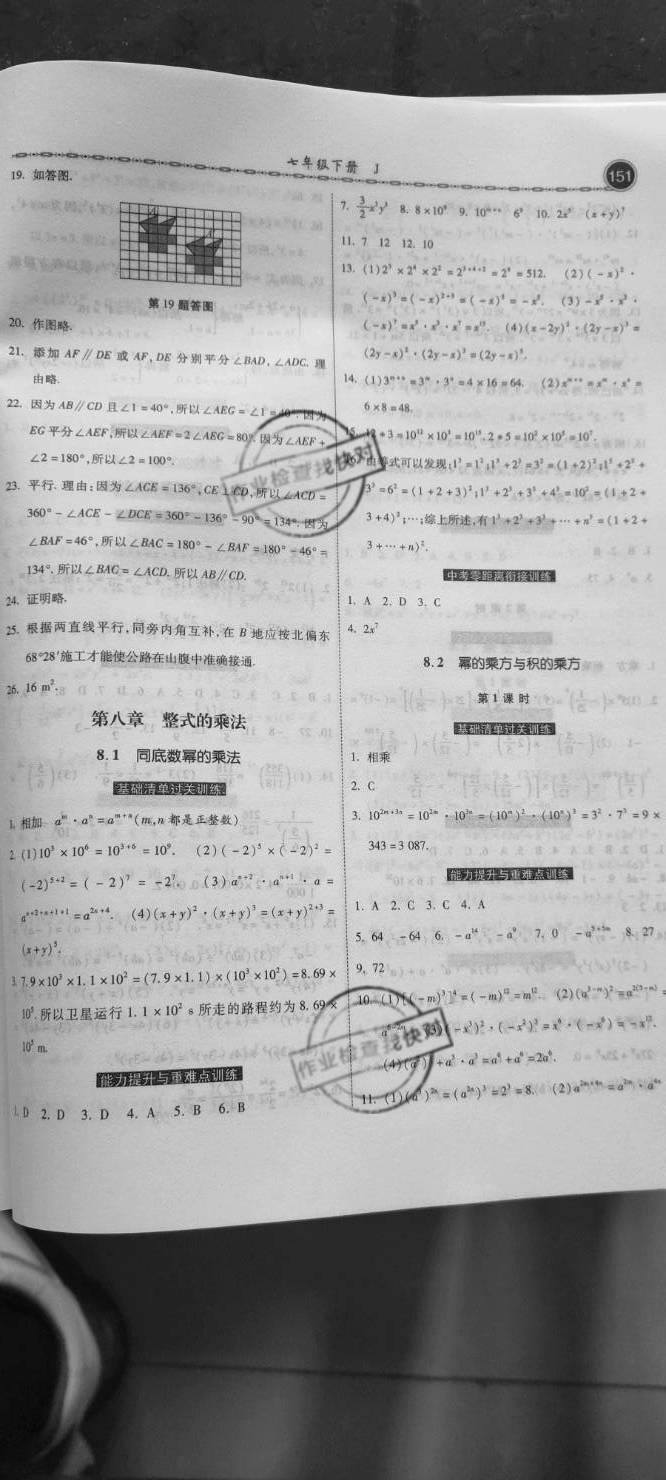 七年级下册 J
151
19. 如答图.
第 19 题答图
20. 作图略.
21. 添加 AF∥DE 或 AF,DE 分别平分∠BAD,∠ADC. 理
由略.
22. 因为 AB∥CD 且∠1=40°,所以∠AEG=∠1=40°.因为
EG 平分∠AEF,所以∠AEF=2∠AEG=80°.因为∠AEF+
∠2=180°,所以∠2=100°.
23. 平行. 理由:因为∠ACE=136°,CE⊥CD,所以∠ACD=
360°-∠ACE-∠DCE=360°-136°-90°=134°.因为
∠BAF=46°,所以∠BAC=180°-∠BAF=180°-46°=
134°.所以∠BAC=∠ACD.所以 AB∥CD.
24. 证明略.
25. 根据两直线平行,同旁内角互补,在 B 地应按北偏东
68°28′施工才能使公路在山腹中准确接通.
26. 16 m².
第八章 整式的乘法
8.1 同底数幂的乘法
基础清单过关训练
1. 相加 aᵐ·aⁿ=aᵐ⁺ⁿ(m,n 都是正整数)
2. (1)10³×10⁶=10³⁺⁶=10⁹. (2)(-2)⁵×(-2)²=
(-2)⁵⁺²=(-2)⁷=-2⁷. (3)aⁿ⁺²·aⁿ⁺¹·a=
aⁿ⁺²⁺ⁿ⁺¹⁺¹=a²ⁿ⁺⁴. (4)(x+y)²·(x+y)³=(x+y)²⁺³=
(x+y)⁵.
3. 7.9×10³×1.1×10²=(7.9×1.1)×(10³×10²)=8.69×
10⁵.所以卫星运行 1.1×10² s 所走的路程约为 8.69×
10⁵ m.
能力提升与重难点训练
1. D 2. D 3. D 4. A 5. B 6. B
8. 8×10⁸ 9.
11. 7 12 12. 10
13. (1)2³×2⁴×2²=2³⁺⁴⁺²=2⁹=512. (2)(-x)²·
(-x)³=(-x)²⁺³=(-x)⁵=-x⁵.
(2y-x)²·(2y-x)³=(2y-x)⁵.
14. (1)3ᵐ⁺ⁿ=3ᵐ·3ⁿ=4×16=64.
6×8=48.
15. 12*3=10¹²×10³=10¹⁵,2*5=10²×10⁵=10⁷.
16. 由等式可以发现:1³=1²;1³+2³=3²=(1+2)²;1³+2³+
3³=6²=(1+2+3)²;1³+2³+3³+4³=10²=(1+2+
3+4)²;…;综上所述,有 1³+2³+3³+…+n³=(1+2+
3+…+n)².
中考零距离衔接训练
1. A 2. D 3. C
4. 2x⁷
8.2 幂的乘方与积的乘方
第 1 课时
基础清单过关训练
1. 相乘
2. C
3. 10²ᵐ⁺³ⁿ=10²ᵐ·10³ⁿ=(10ᵐ)²·(10ⁿ)³=3²·7³=9×
343=3 087.
能力提升与重难点训练
1. A 2. C 3. C 4. A
5. 64 -64 6. -a¹⁴ -a⁹ 7. 0 8. 27
9. 72
10. (1)[(-m)³]⁴=(-m)¹²=m¹².
(3)(-x³)²·(-x²)³=x⁶·(-x⁶)=-x¹².
=a⁶+a⁶=2a⁶.
作业检查找快对
作业检查找快对